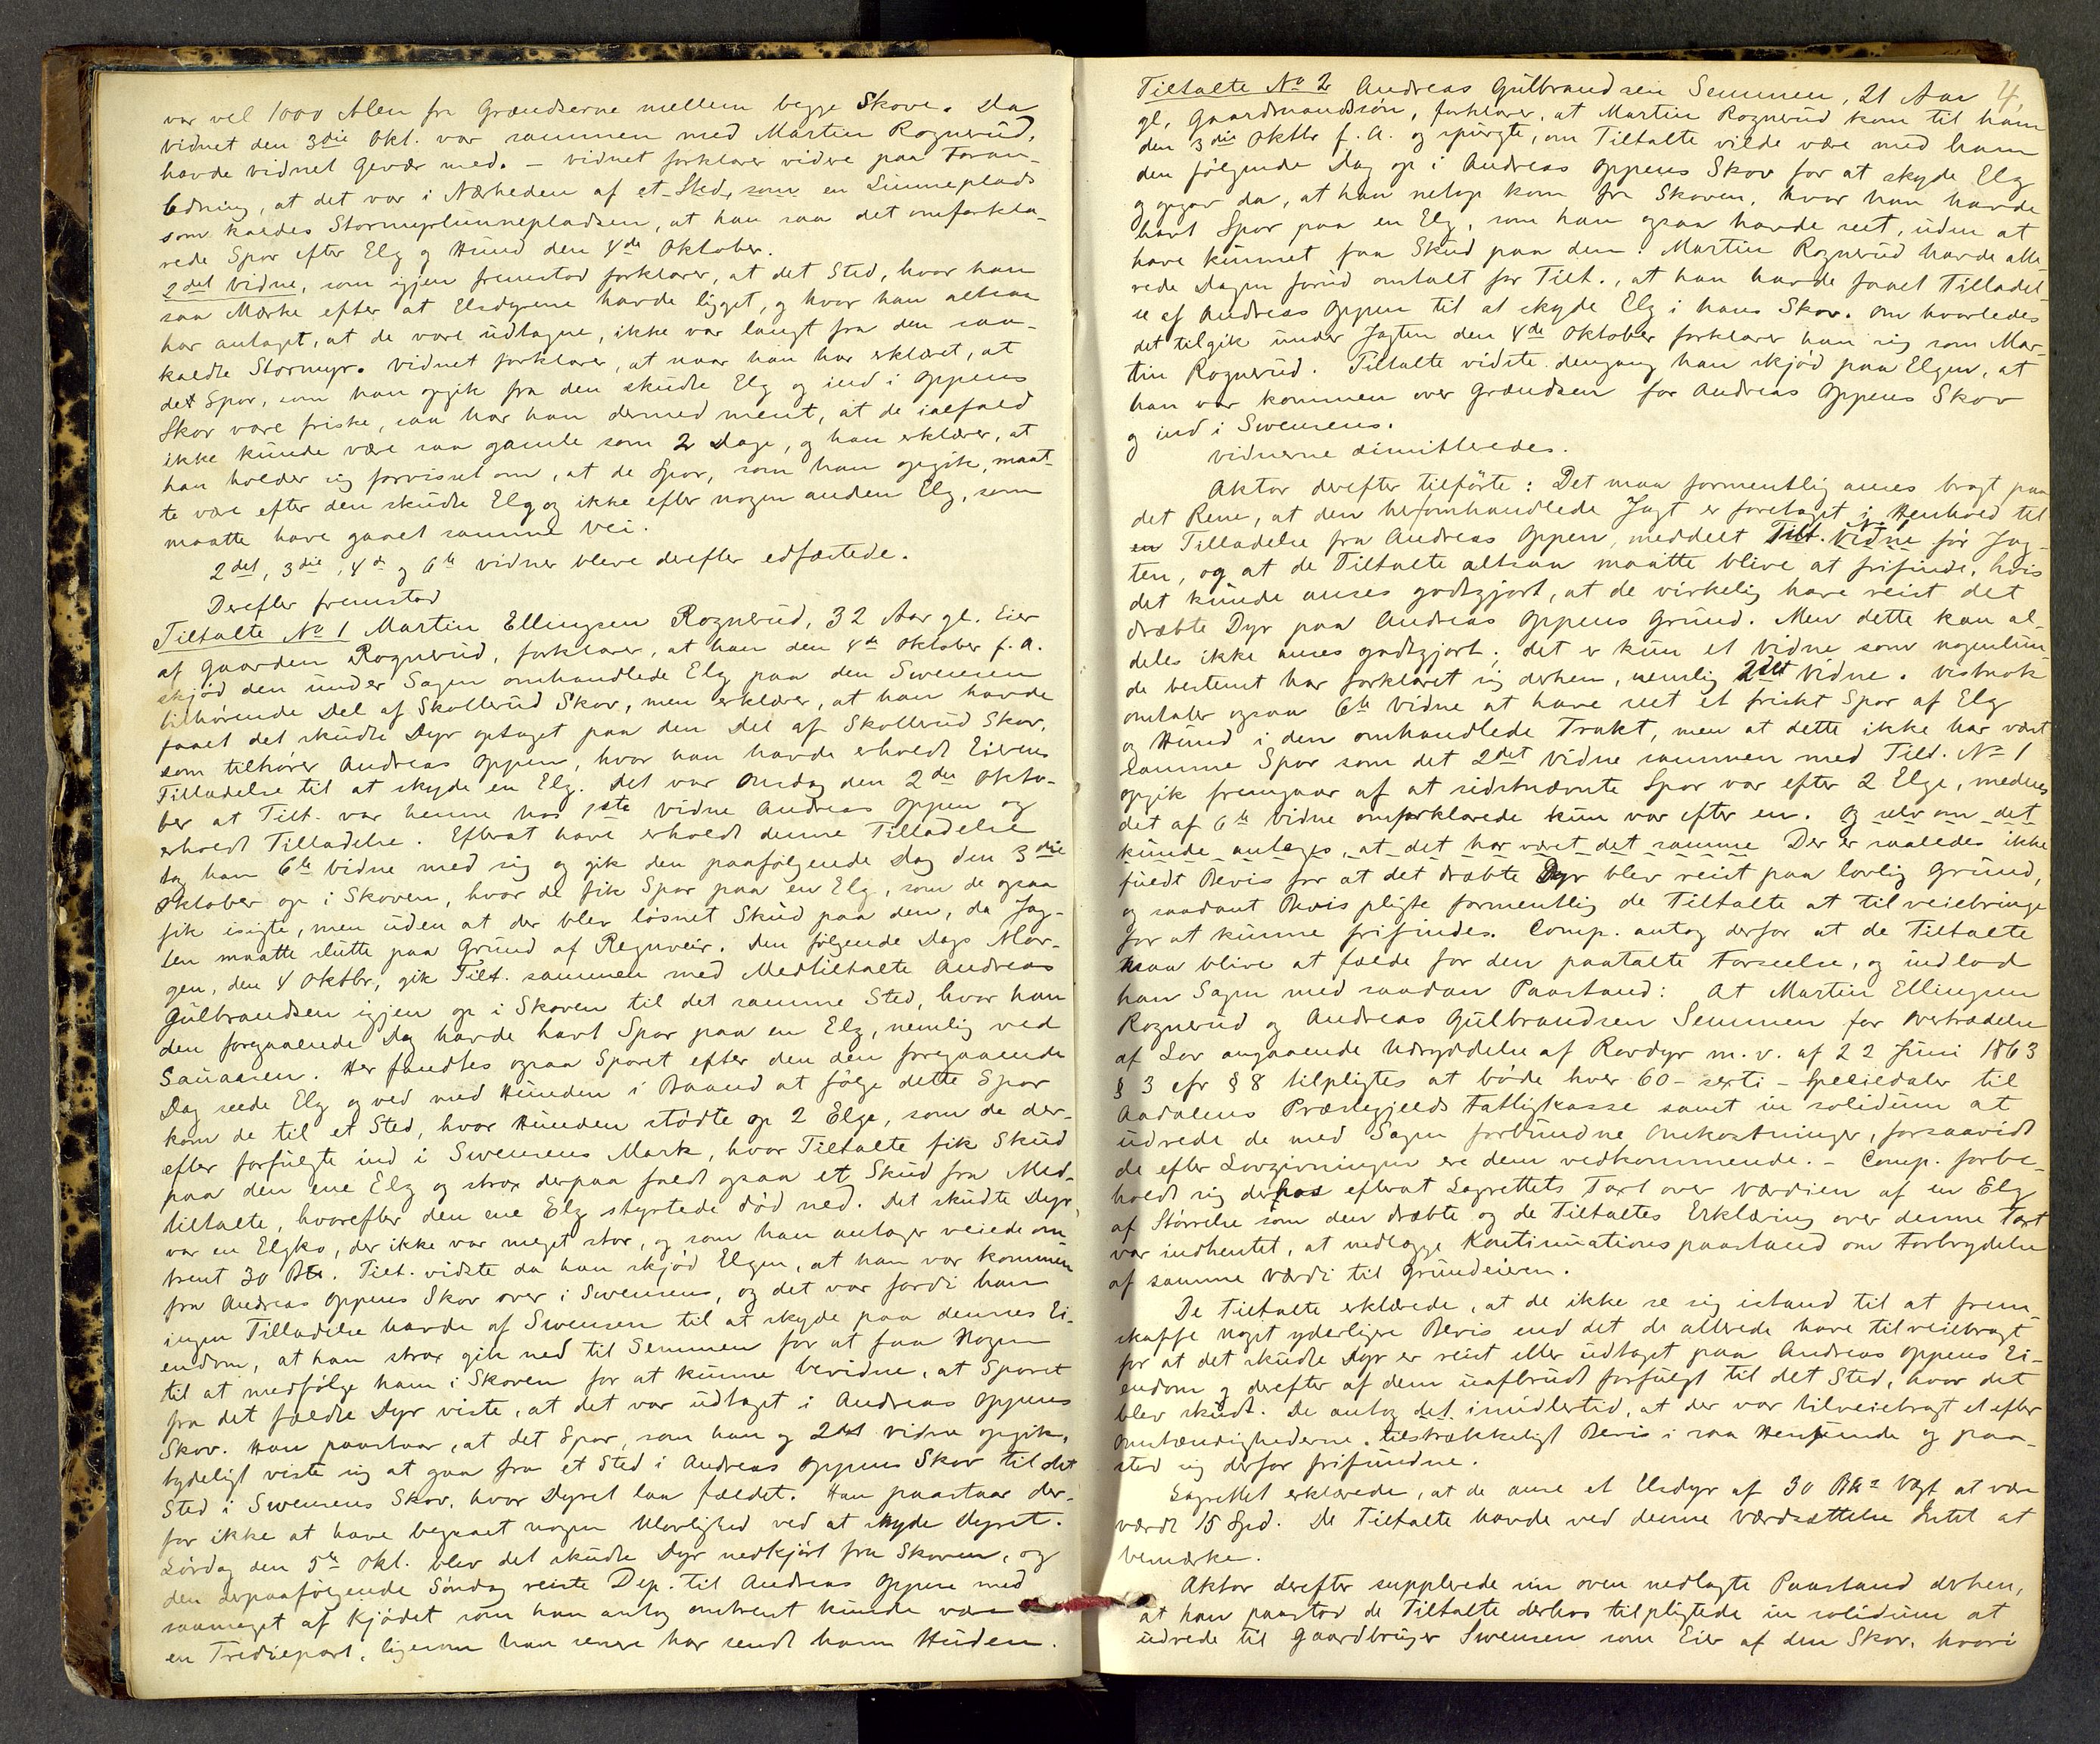 var vel 1000 Alen fra Grændserne mellem begge Skove. Da
vidnet den 3die Okt. var sammen med Martin Rognerud,
havde vidnet Gevær med. – Vidnet forklarer videre paa Foran-
ledning, at det var i Nærheden af et Sted, som en Lunneplads
som kaldes Stormyrlunnepladsen, at han saa det omforkla-
rede Spor efter Elg og Hund den 4de Oktober.
2det Vidne, som igjen fremstod forklarer, at det Sted, hvor han
saa Mærke efter at Elsdyrene havde ligget, og hvor han altsaa
har antaget, at de vare udtagne, ikke var langt fra den saa-
kaldte Stormyr. Vidnet forklarer, at naar han har erklæret, at
det Spor, som han opgik fra den skudte Elg og ind i Oppens
Skov vare friske, saa har han dermed ment, at de ialfald
ikke kunde være saa gamle som 2 Dage, og han erklærer, at
han holder sig forvisset om, at de Spor, som han opgik, maat-
te være efter den skudte Elg og ikke efter nogen anden Elg, som
maatte have gaaet samme Vei.
2det, 3die, 4de og 6te vidner bleve derefter edfæstede.
Derefter fremstod
Tiltalte No 1 Martin Ellingsen Rognerud, 32 Aar gl. Eier
af Gaarden Rognerud, forklarer, at han den 4de Oktober f. A.
skjød den under Sagen omhandlede Elg paa den Swensen
tilhørende Del af Skollerud Skov, men erklærer, at han havde
faaet det skudte Dyr optaget paa den Del af Skollerud Skov,
som tilhører Andreas Oppen, hvor han havde erholdt Eierens
Tilladelse til at skyde en Elg. Det var Onsdag den 2den Okto-
ber at Tilt. var henne hos 1ste Vidne Andreas Oppen og
erholdt Tilladelse. Efterat have erholdt denne Tilladelse
tog han 6te vidne med sig og gik den paafølgende Dag den 3die
Oktober op i Skoven, hvor de fik Spor paa en Elg, som de ogsaa
fik isigte, men uden at der blev løsnet Skud paa den, da Jag-
ten maatte slutte paa Grund af Regnveir. Den følgende Dags Mor-
gen, den 4 Oktbr, gik Tilt. sammen med Medtiltalte Andreas
Gulbrandsen igjen op i Skoven til det samme Sted, hvor han
den forgaaende Dag havde havt Spor paa en Elg, nemlig ved
Sauaasen. Her fandtes ogsaa Sporet efter den den foregaaende
Dag seede Elg og ved med Hunden i Baand at følge dette Spor
kom de til et Sted, hvor Hunden stødte op 2 Elge, som de der-
efter forfulgte ind i Swensens Mark, hvor Tiltalte fik Skud
paa den ene Elg og strax derpaa faldt ogsaa et Skud fra Med-
tiltalte, hvorefter den ene Elg styrtede død ned. Det skudte Dyr
var en Elgko, der ikke var meget stor, og som han antager veiede om-
trent 30 B℔. Tilt. vidste da han skjød Elgen, at han var kommen
fra Andreas Oppens Skov over i Swensens, og det var fordi han
ingen Tilladelse havde af Swensen til at skyde paa dennes Ei-
endom, at han strax gik ned til Semmen for at faa Nogen
til at medfølge ham i Skoven for at kunne bevidne, at Sporet
fra det fældte Dyr viste, at det var udtaget i Andreas Oppens
Skov. Han paastaar, at det Spor, som han og 2det vidne opgik,
tydeligt viste sig at gaa fra et Sted i Andreas Oppens Skov til det
Sted i Swensens Skov, hvor Dyret laa fældet. Han paastaar der-
for ikke at have begaaet nogen Ulovlighed ved at skyde Dyret.
Lørdag den 5te Okt. blev det skudte Dyr nedkjørt fra Skoven, og
den derpaafølgende Søndag reiste Dep. til Andreas Oppen med
saameget af Kjødet som han antog omtrent kunde være
en Trediepart, ligesom han senere har sendt ham Huden.
4,
Tiltalte No 2 Andreas Gulbrandsen Semmen, 21 Aar
gl. Gaardmandssøn, forklarer, at Martin Rognerud kom til ham
den 3die Oktbr f. A. og spurgte, om Tiltalte vilde være med ham
den følgende Dag op i Andreas Oppens Skov for at skyde Elg
og opgav da, at han netop kom fra Skoven, hvor han havde
havt Spor paa en Elg, som han ogsaa havde seet, uden at
have kunnet faa Skud paa den. Martin Rognerud havde alle-
rede Dagen forud omtalt for Tilt., at han havde faaet Tilladel-
se af Andreas Oppen til at skyde Elg i hans Skov. Om hvorledes
det tilgik under Jagten den 4de Oktober forklarer han sig som Mar-
tin Rognerud. Tiltalte vidste dengang han skjød paa Elgen, at
han var kommen over Grændsen for Andreas Oppens Skov
og ind i Swensens.
Vidnerne dimitteredes.
Aktor derefter tilførte: Det maa formentlig anses bragt paa
det Rene, at den heromhandlede Jagt er foretaget i Henhold til
en Tilladelse fra Andreas Oppen, meddelt Tilt. No 1 før Jag-
ten, og at de Tiltalte altsaa maatte blive at frifinde, hvis
det kunde anses godtgjort, at de virkelig have reist det
dræbte Dyr paa Andreas Oppens Grund. Men dette kan al-
deles ikke anses godtgjort; det er kun et Vidne som nogenlun-
de bestemt har forklaret sig derhen, nemlig 2det Vidne. Vistnok
omtaler ogsaa 6te Vidne at have seet et friskt Spor af Elg
og Hund i den omhandlede Trakt, men at dette ikke har vært
samme Spor som det 2det Vidne sammen med Tilt. No 1
opgik fremgaar af at sidstnævnte Spor var efter 2 Elge, medens
det af 6te Vidne omforklarede kun var efter en. Og selv om det
kunde antages, at det har været det samme Der er saaledes ikke
fuldt Bevis for at det dræbte Dyr blev reist paa lovlig Grund,
og saadant Bevis pligte formentlig de Tiltalte at tilveiebringe
for at kunne frifindes. Comp. antog derfor at de Tiltalte
maa blive at fælde for den paatalte Forseelse, og indlod
han Sagen med saadan Paastand: At Martin Ellingsen
Rognerud og Andreas Gulbrandsen Semmen for Overtrædelse
af Lov angaaende Udryddelse af Rovdyr m. v. af 22 Juni 1863
§ 3 cfr § 8 tilpligtes at bøde hver 60 – sexti – Speciedaler til
Aadalens Præstegjelds Fattigkasse samt in solidum at
udrede de med Sagen forbundne Omkostninger, forsaavidt
de efter Lovgivningen ere dem vedkommende. – Comp. forbe-
holdt sig derhos efterat Lagrettets Taxt over Værdien af en Elg
af Størrelse som den dræbte og de Tiltaltes Erklæring over denne Taxt
var indhentet, at nedlægge Kontinuationspaastand om Forbrydelse
af samme Værdi til Grundeieren.
De Tiltalte erklærede, at de ikke se sig istand til at frem-
skaffe noget yderligere Bevis end det de allerede have tilveiebragt
for at det skudte Dyr er reist eller udtaget paa Andreas Oppens Ei-
endom og derefter af dem uafbrudt forfulgt til det Sted, hvor det
blev skudt. De antog det imidlertid, at der var tilveiebragt et efter
Omstændighederne tilstrækkeligt Bevis i saa Henseende og paa-
stod sig derfor frifundne.
Lagrettet erklærede, at de anse et Elsdyr af 30 B℔s Vægt at være
værdt 15 Spd. De Tiltalte havde ved denne Værdsættelse Intet at
bemærke.
Aktor derefter supplerede sin oven nedlagte Paastand derhen,
at han paastod de Tiltalte derhos tilpligtede in solidum at
udrede til Gaardbruger Swensen som Eier af den Skov, hvori